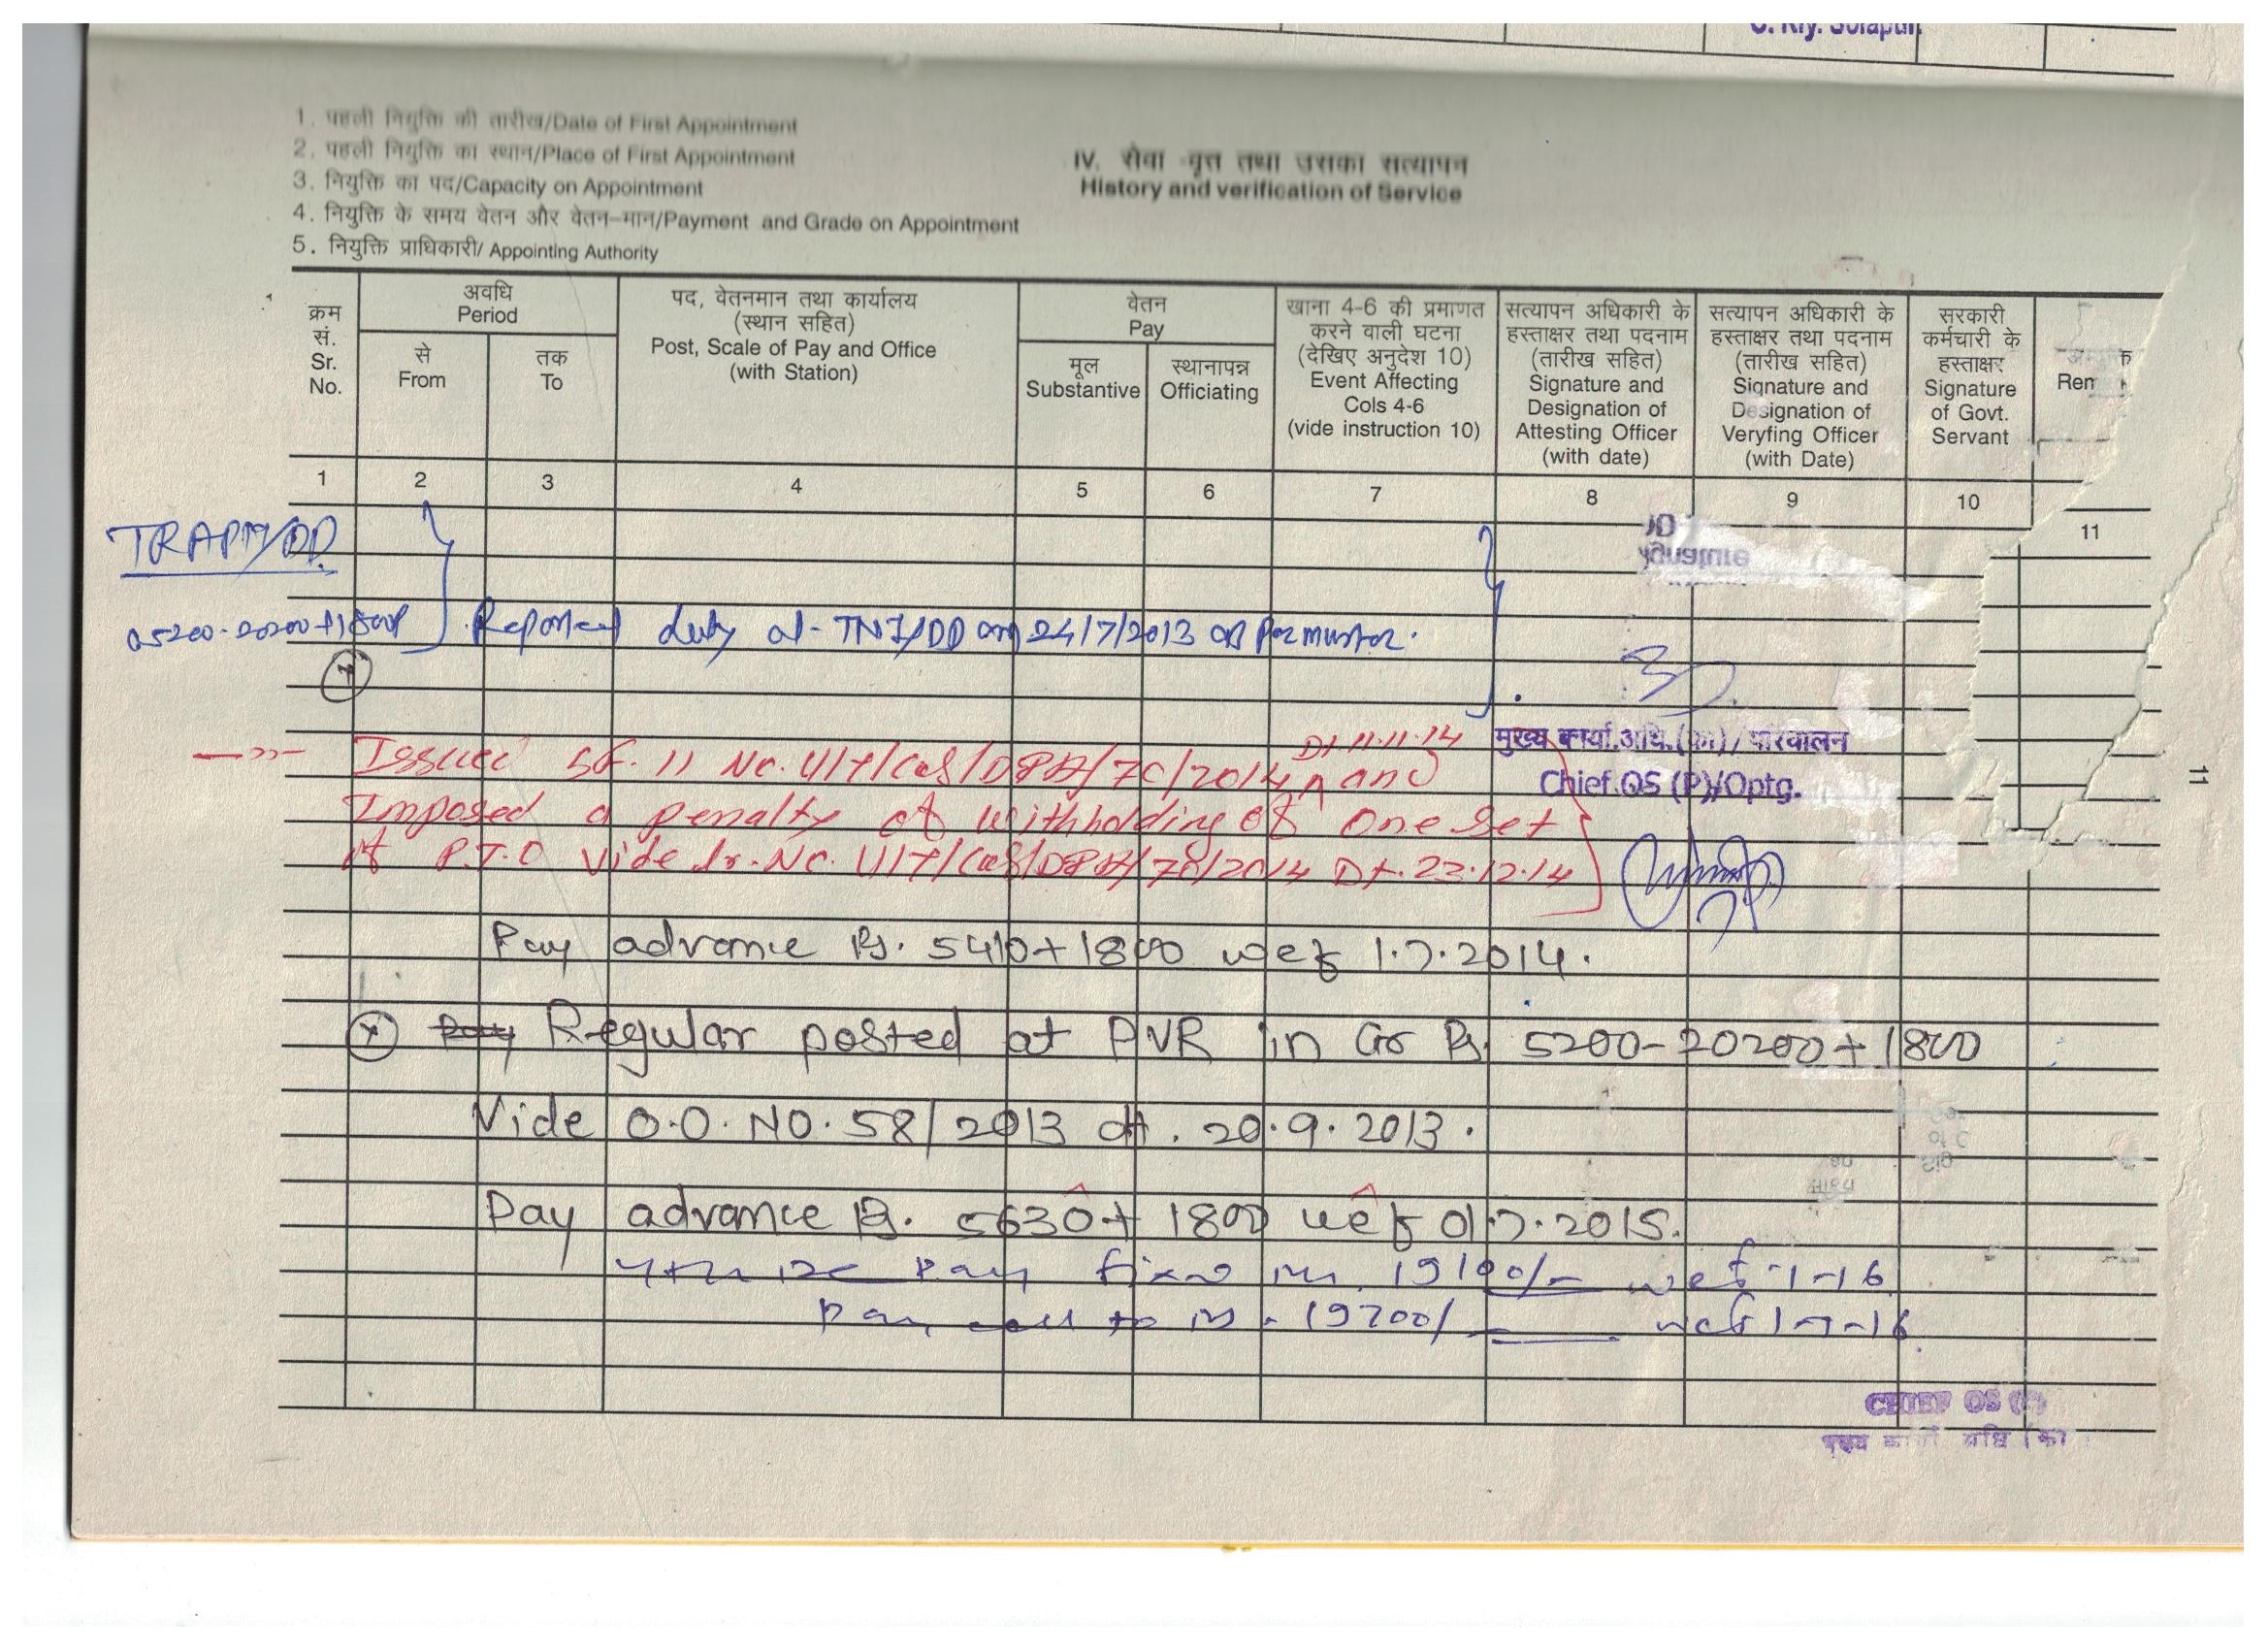 C. Rly. Solapur.
1. पहली नियुक्ति की तारीख/Date of First Appointment
2. पहली नियुक्ति का स्थान/Place of First Appointment
3. नियुक्ति का पद/Capacity on Appointment
4. नियुक्ति के समय वेतन और वेतन-मान/Payment and Grade on Appointment
5. नियुक्ति प्राधिकारी/ Appointing Authority
IV. सेवा वृत्त तथा उसका सत्यापन
History and verification of Service
क्रम
सं.
Sr.
No.
अवधि
Period
से
From
तक
To
पद, वेतनमान तथा कार्यालय
(स्थान सहित)
Post, Scale of Pay and Office
(with Station)
वेतन
Pay
मूल
Substantive
स्थानापन्न
Officiating
खाना 4-6 की प्रमाणत
करने वाली घटना
(देखिए अनुदेश 10)
Event Affecting
Cols 4-6
(vide instruction 10)
सत्यापन अधिकारी के
हस्ताक्षर तथा पदनाम
(तारीख सहित)
Signature and
Designation of
Attesting Officer
(with date)
सत्यापन अधिकारी के
हस्ताक्षर तथा पदनाम
(तारीख सहित)
Signature and
Designation of
Veryfing Officer
(with Date)
सरकारी
कर्मचारी के
हस्ताक्षर
Signature
of Govt.
Servant
Rem
1 2 3 4 5 6 7 8 9 10 11
Reported duty at TNJ/DD on 24/7/2013 as per muster.
Dt 11.11.14
Issued SF. 11 No. U/T/Cas/D&A/70/2014 and
Imposed a penalty of withholding of One Set
of P.T.O Vide Lr. No. U/T/Cas/D&A/70/2014 Dt. 22.12.14
मुख्य कार्या.अधि.(का)/परिचालन
Chief.OS (P)/Optg.
11
Pay advance Rs. 5410+1800 wef 1.7.2014.
Pay Regular posted at PVR in Gr Rs. 5200-20200+1800
Vide O.O. NO. 58/2013 dt. 20.9.2013.
Pay advance Rs. 5630+1800 wef 01.7.2015.
Pay fixed Rs. 19100/- wef 1-1-16
Pay to Rs. 19700/- wef 1-7-16
CHIEF OS (P)